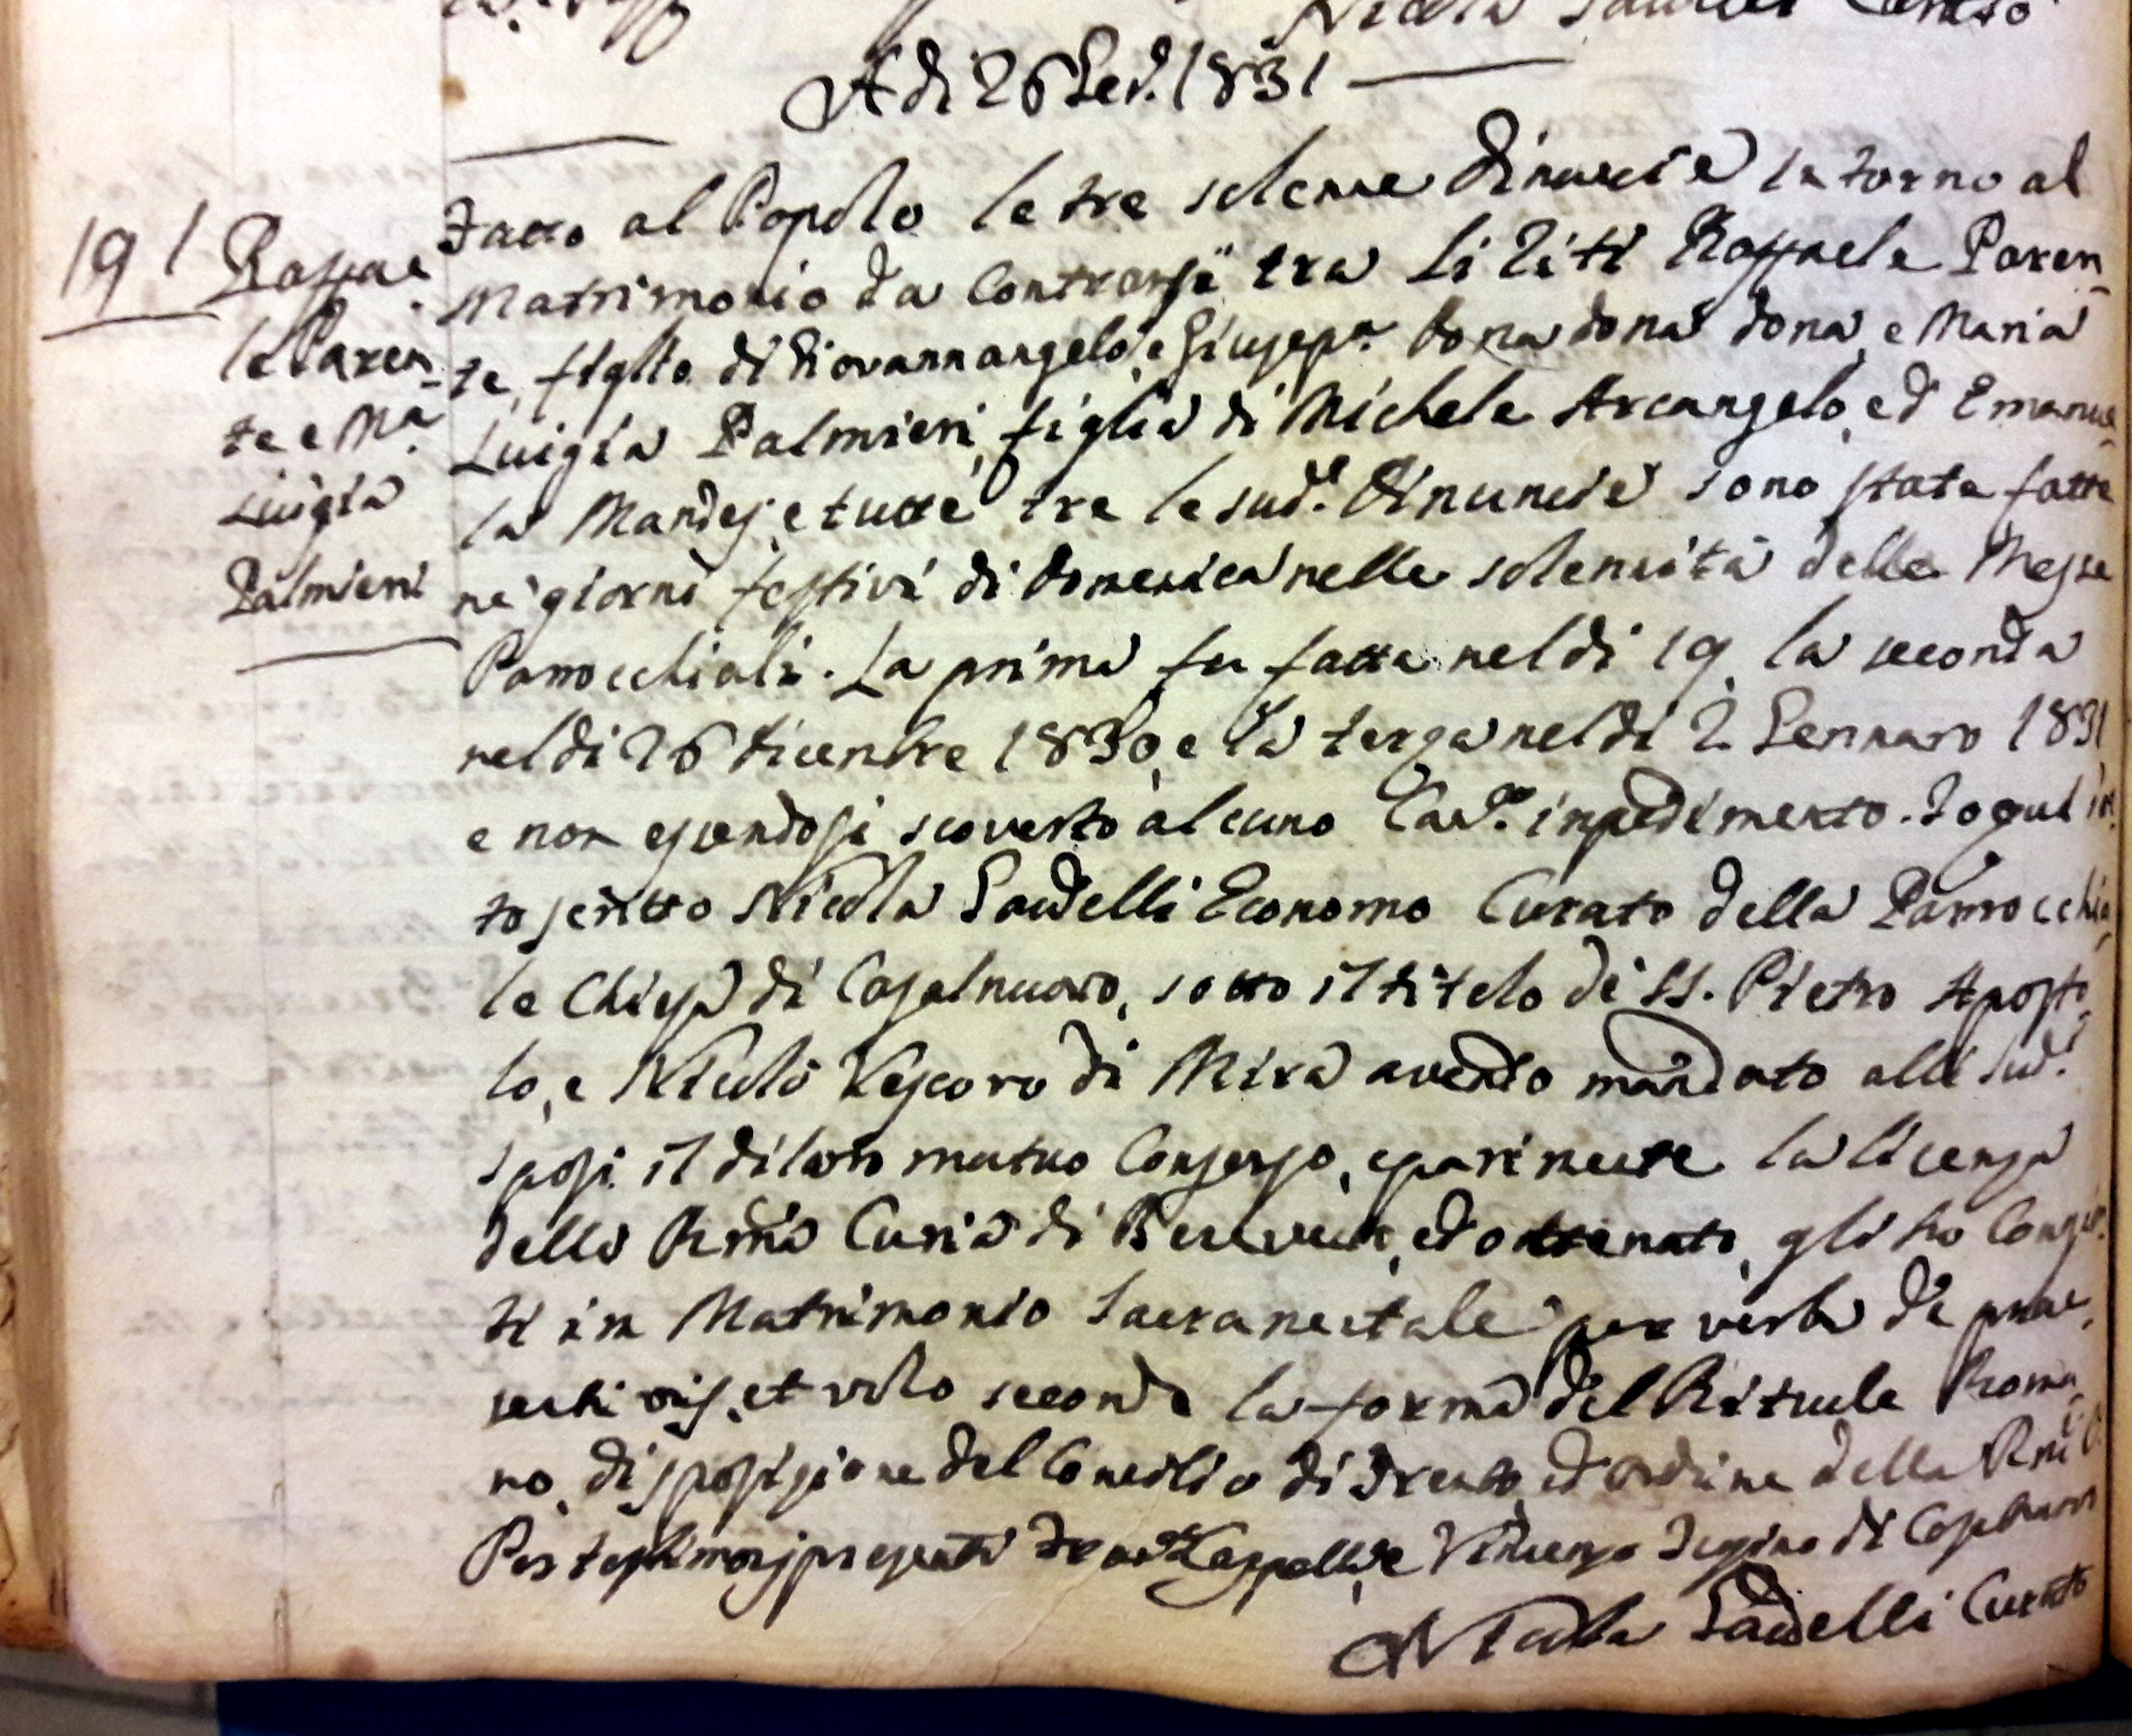 A dì 26 Gen. 1831
191
Raffae
le Paren
te e Ma
Luigia
Palmieri
Fatto al Popolo le tre solenne dinuncie intorno al
Matrimonio da Contrarsi tra li Ziti Raffaele Paren
te, figlio di Giovannangelo, e Giusep.a Bona dona dona, e Maria
Luigia Palmieri, figlia di Michele Arcangelo, ed Emanue
la Mandes, e tutte tre le sud.e dinuncie sono state fatte
ne' giorni festivi di Domenica nelle solennità delle Messe
Parrocchiali. La prima fu fatta nel dì 19, la seconda
nel dì 26 Dicembre 1830, e la terza nel dì 2 Gennaro 1831
e non essendosi scoverto alcuno Can.co inpedimento. Io qui in
toscritto Nicola Saudelli Economo Curato della Parrocchia
le Chiesa di Casalnuovo, sotto il titolo di SS. Pietro Aposto
lo, e Nicolò Vescovo di Mira avendo mandato alli sud.i
sposi il di loro mutuo Consenso, e parimente la licenza
della Rma Curia di Benevento, ed ottenuto, gli ho Congiun
ti in Matrimonio Sacramentale per verba de prae
senti vis, et volo secondo la forma del Rituale Roma
no, disposizione del Concilio di Trento, ed ordine della Rma C.
Pos testimonj presenti Cappella, e Vincenzo di Casalnuovo
Nicola Saudelli Curato